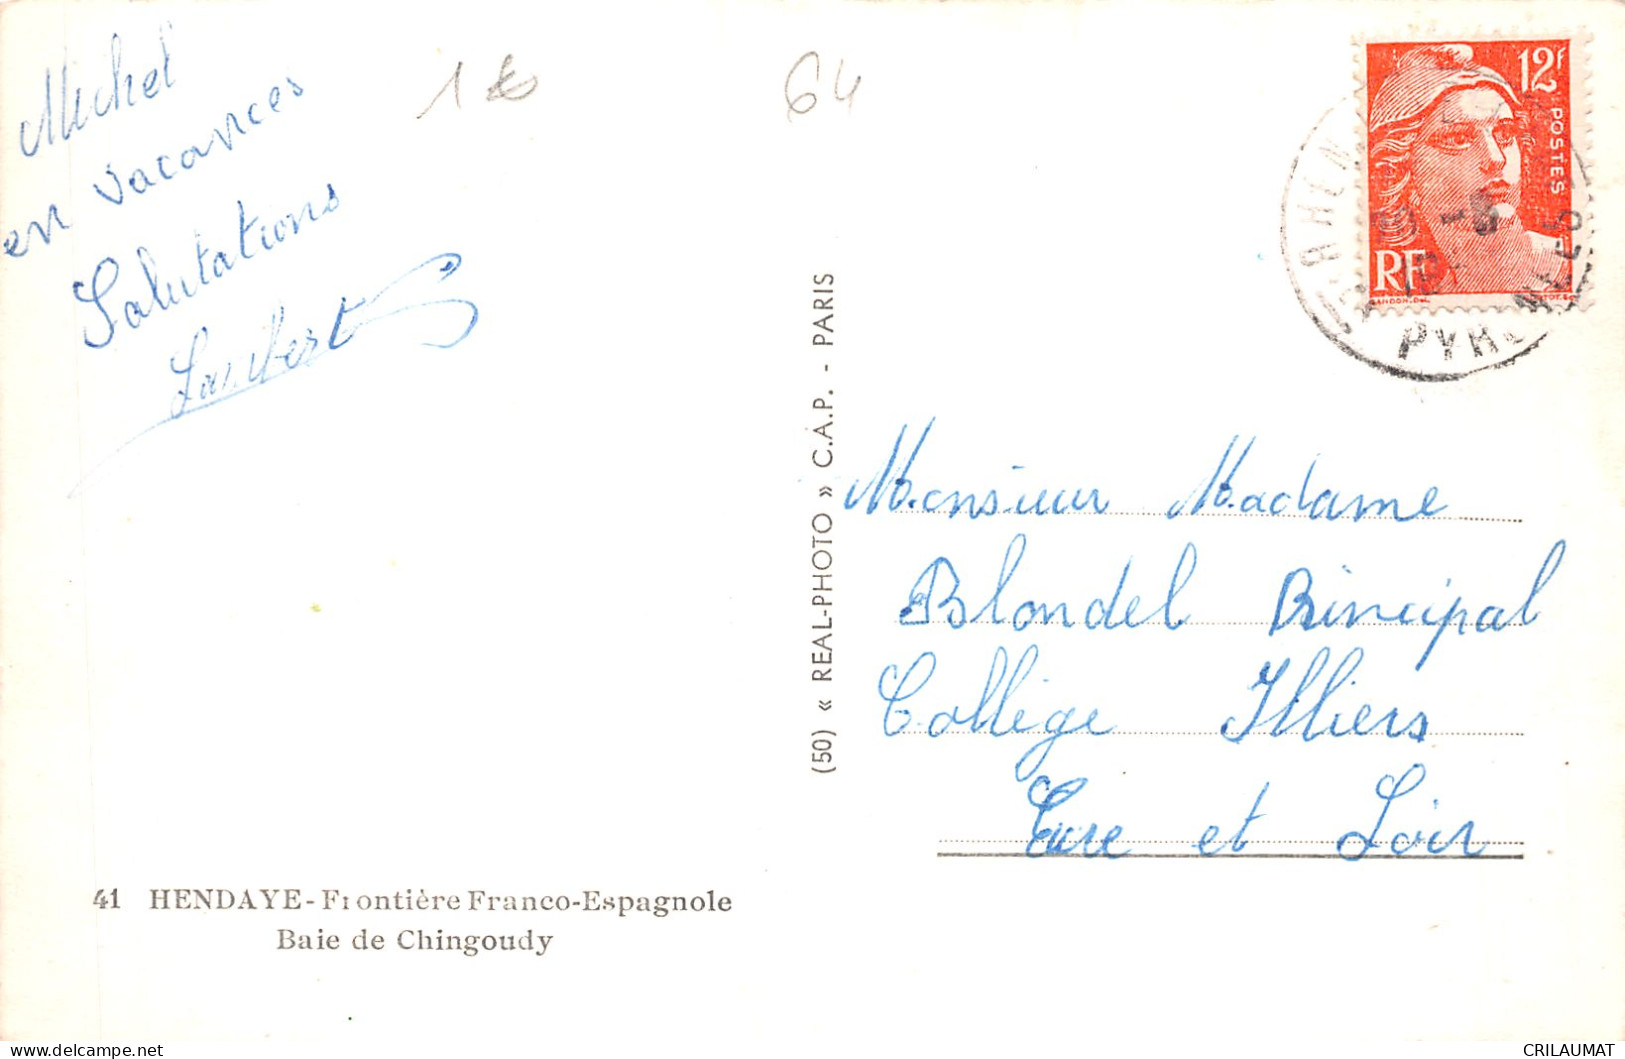 Michel
en vacances
Salutations
Lambert
1 €
64
12F
POSTES
RF
PYR
(50) « REAL-PHOTO » C.A.P. - PARIS
Monsieur Madame
Blondel Principal
Collège Illiers
Eure et Loir
41 HENDAYE-Frontière Franco-Espagnole
Baie de Chingoudy
delcampe.net
CRILAUMAT